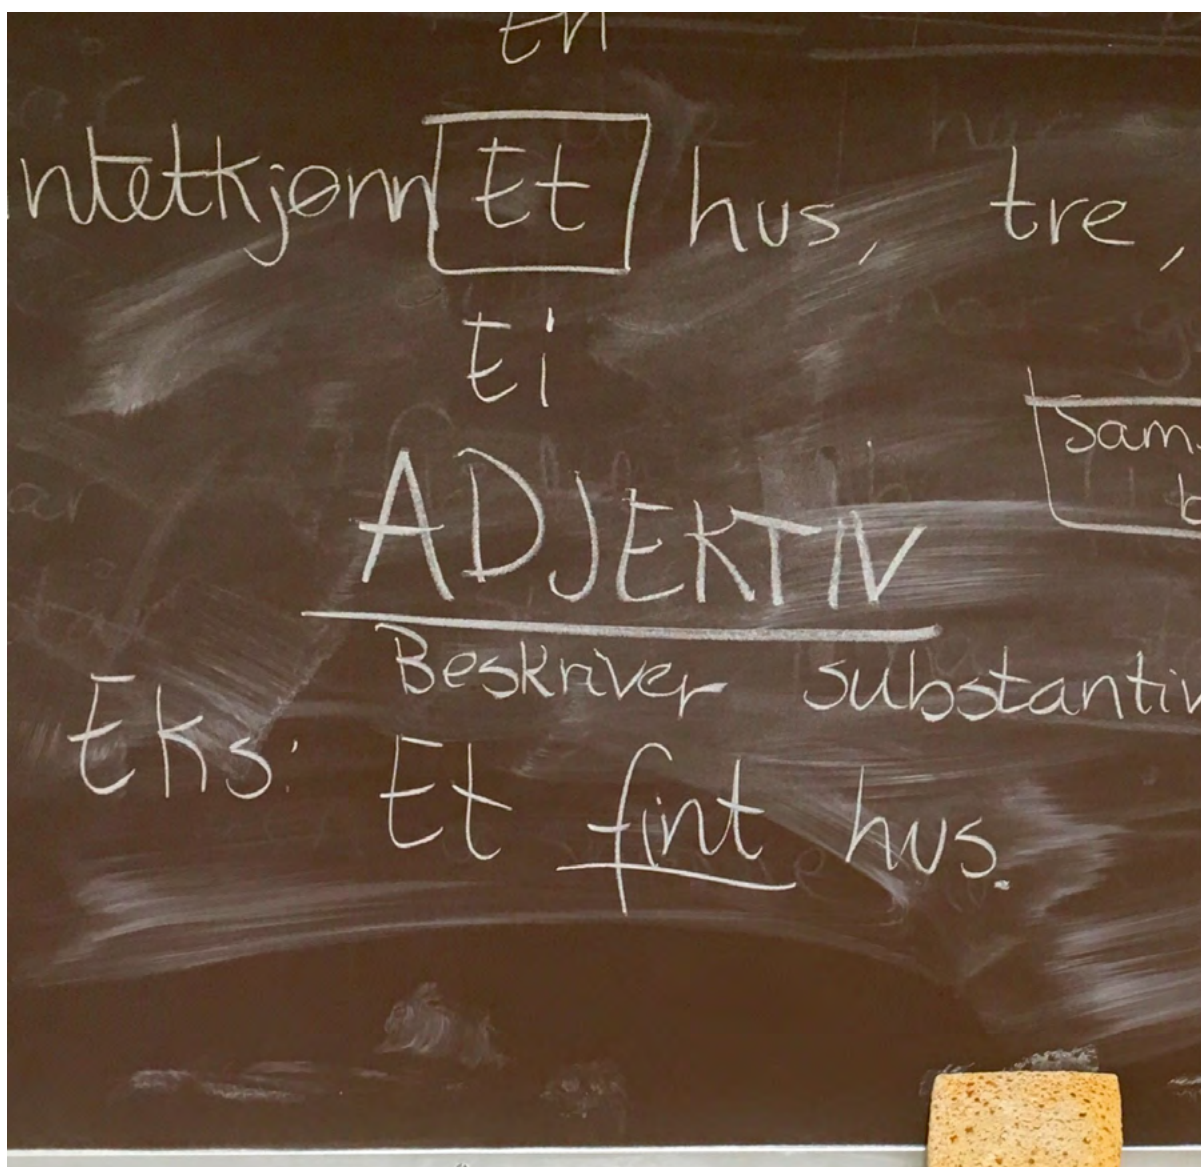 En
ntetkjønn Et hus, tre,
Ei
Sam
b
ADJEKTIV
Beskriver substantiv
Eks: Et fint hus.